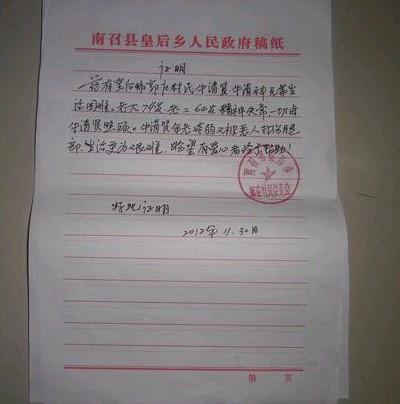 南召县皇后乡人民政府稿纸
证明
兹有皇后乡郭庄村民牛清贤牛清神兄弟生
活困难。老大74岁老二60岁精神失常一切由
牛清贤照顾。牛清贤年老又被恶人打伤眼
部生活更为艰难,盼望有爱心者给予帮助!
特此证明
2012年11.30日
郭庄村民委员会
第 页